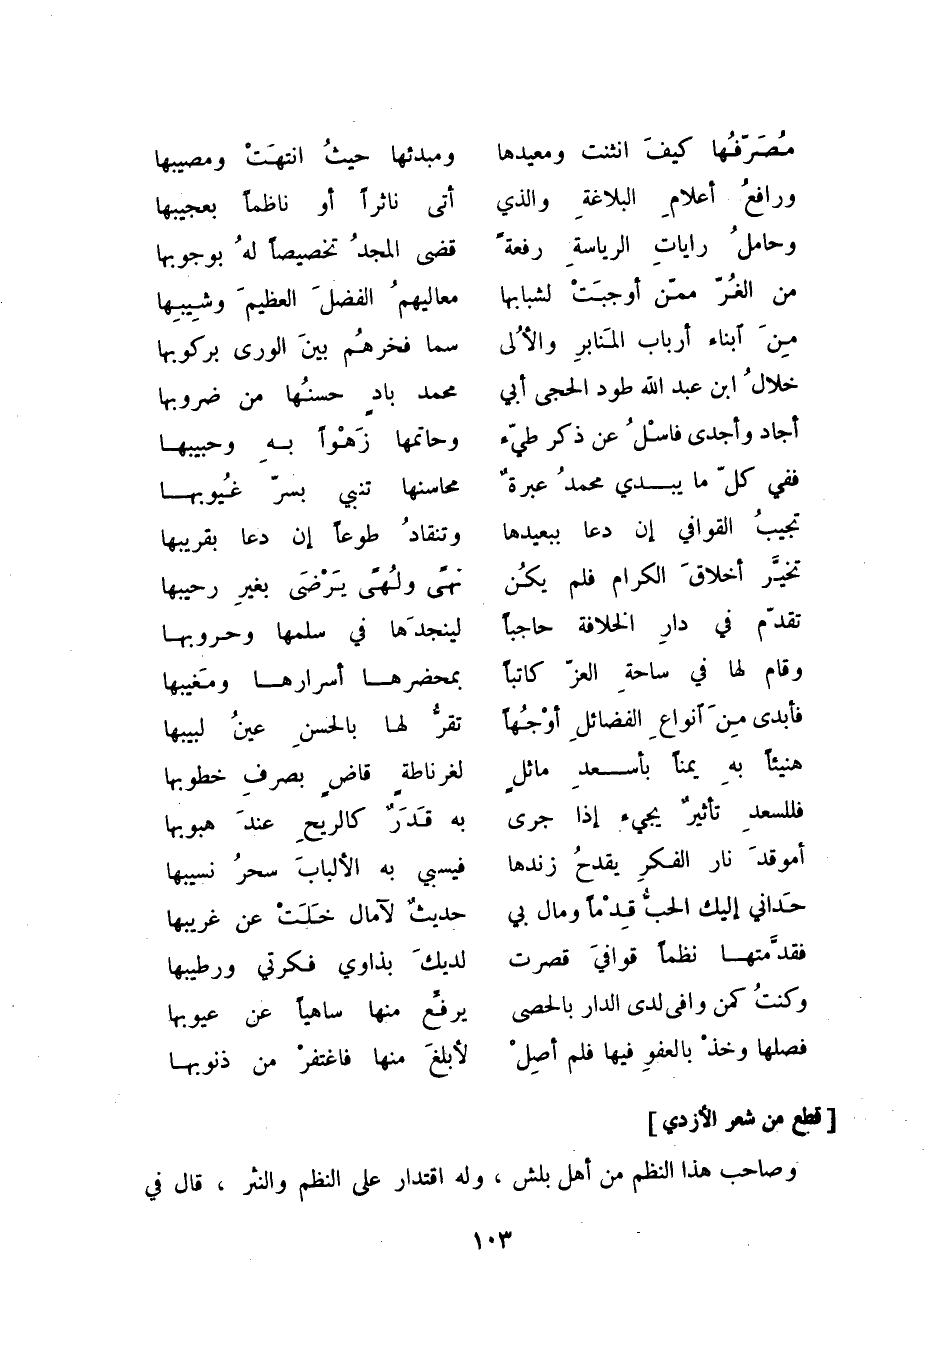 مُصَرِّفُها كيفَ انثنت ومعيدها ومبدئها حيثُ انتهَتْ ومصيبها
ورافعُ أعلامِ البلاغةِ والذي أتى ناثراً أو ناظماً بعجيبها
وحاملُ راياتِ الرياسةِ رفعةً قضى المجدُ تخصيصاً لهُ بوجوبها
من الغُرّ ممّن أوجبَتْ لشبابها معاليهمُ الفضلَ العظيمَ وشيبِها
مِنَ آبناء أرباب المنَابرِ والأُلى سما فخرهُم بينَ الورى بركوبها
خلالُ ابن عبد الله طود الحجى أبي محمد بادٍ حسنُها من ضروبها
أجاد وأجدى فاسْلُ عن ذكر طيّء وحاتمها زَهْواً بهِ وحبيبها
ففي كلّ ما يبدي محمدُ عبرةٌ محاسنها تنبي بسرّ غُيوبها
تجيبُ القوافي إن دعا ببعيدها وتنقادُ طوعاً إن دعا بقريبها
تخيَّر أخلاقَ الكرام فلم يكُن نهًى ولُهًى يَرْضَى بغيرِ رحيبها
تقدّم في دارِ الخلافة حاجباً لينجدَها في سلمها وحروبها
وقام لها في ساحةِ العزّ كاتباً بمحضرها أسرارها ومَغيبها
فأبدى مِنَ آنواعِ الفضائلِ أوْجُهاً تقرُّ لها بالحسنِ عينُ لبيبها
هنيئاً بهِ يمناً بأسعدِ ماثلٍ لغرناطةٍ قاضٍ بصرفِ خطوبها
فللسعدِ تأثيرٌ يجيء إذا جرى به قَدَرٌ كالريحِ عندَ هبوبها
أموقدَ نار الفكرِ يقدحُ زندها فيسبي به الألبابَ سحرُ نسيبها
حَداني إليك الحبُّ قِدْماً ومال بي حديثٌ لآمال خَلَتْ عن غريبها
فقدَّمتها نظماً قوافيَ قصرت لديكَ بذاوي فكرتي ورطيبها
وكنتُ كمن وافى لدى الدار بالحصى يرفّع منها ساهياً عن عيوبها
فصلها وخذْ بالعفوِ فيها فلم أصِلْ لأبلغَ منها فاغتفرْ من ذنوبها
[ قطع من شعر الأزدي ]
وصاحب هذا النظم من أهل بلش ، وله اقتدار على النظم والنثر ، قال في
١٠٣